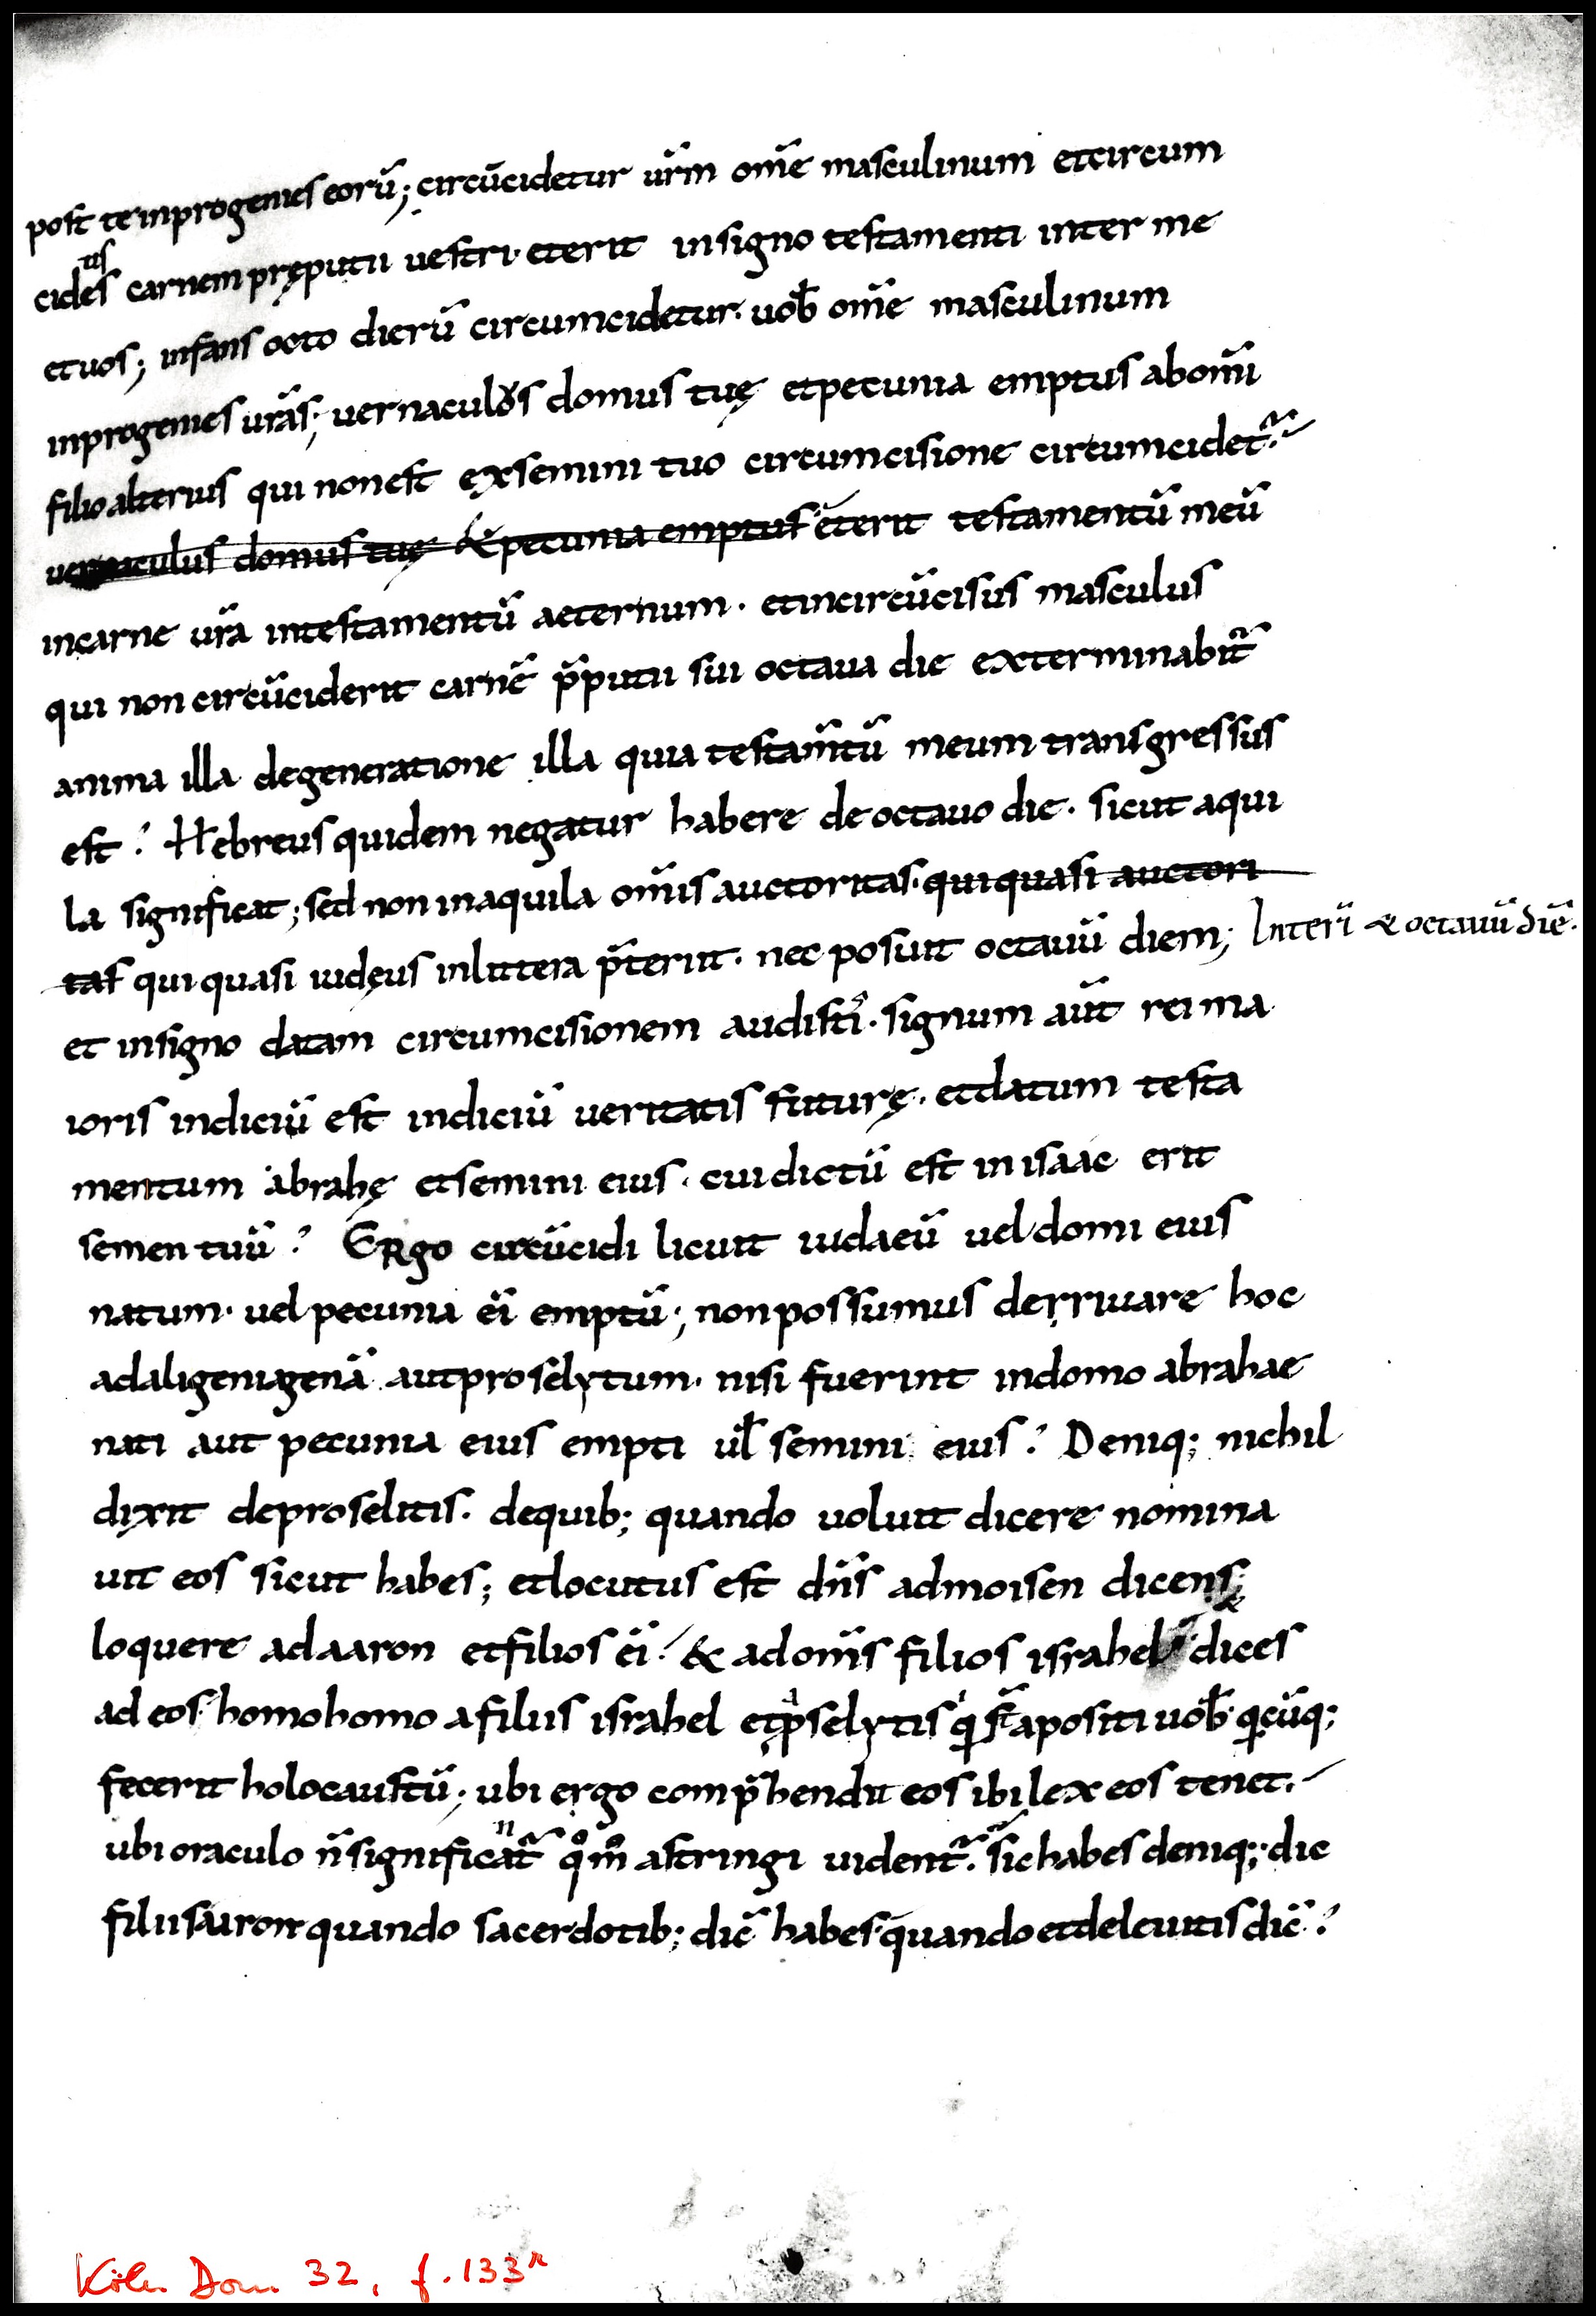 post te inprogenies eorū; circūcidetur ur̄m om̄e masculinum etcircum
cides carnem pręputii uestri· eterit insigno testamenti inter me
tis
etuos; infans octo dierū circumcidetur· uob̄ om̄e masculinum
inprogenies ur̄as; uernaculos domus tuę etpecunia emptus abomi
filio alterius qui nonest exsemini tuo circumcisione circumcidet̄·
uernaculus domus tuę & pecunia emptus eterit testamentū meū
incarne ur̄a intestamentū aeternum· etincircūcisus masculus
qui non circūciderit carnē p̄putii sui octaua die exterminabit̄
anima illa degeneratione illa quia testam̄tū meum transgressus
est? Hebreus quidem negatur habere de octauo die· sicut aqui
la significat; sed non inaquila om̄is auctoritas· quiquasi auctori
tas qui quasi iudęus inlittera p̄teriit· nec posuit octauū diem; Interī & octauū diē·
et insigno datam circumcisionem audisti· signum aūt rei ma
ioris indiciū est indiciū ueritatis futurę· etdatum testa
mentum abrahę etsemini eius· cui dictū est in isaac erit
semen tuū? Ergo circūcidi licuit iudaeū uel domi eius
natum· uel pecunia eī emptū; nonpossumus derriuare hoc
adaligenigenā autproselytum· nisi fuerint indomo abrahae
nati aut pecunia eius empti ul̄ semini eius? Deniq; nichil
dixit deproselitis· dequib; quando uoluit dicere nomina
uit eos sicut habes; etlocutus est dn̄s admoisen dicens;
loquere adaaron etfilios eī & adom̄s filios israhel & dices
ad eos· homohomo afiliis israhel etp̄selytis qi st̄ apositi uob̄· qicūq;
fecerit holocaustū· ubi ergo comp̄hendit eos ibi lex eos tenet·
ubi oraculo n̄ significat̄ qo mo astringi uident̄· sic habes deniq; dic
n
filiis aaron quando sacerdotib; dic̄ habes· quando etdeleuitis dic̄?
Köln Dom 32, f. 133r